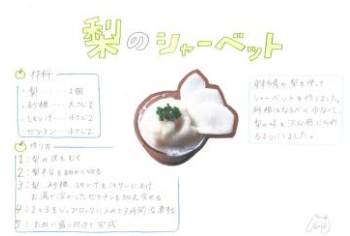 梨のシャーベット
材料
・梨・・・・1個
・砂糖・・・大さじ2
・レモン汁・・小さじ2
・ゼラチン・・小さじ2
作り方
1:梨の皮をむく
2:梨半分を細かく切る
3:梨、砂糖、レモン汁をミキサーにかけ、
お湯で溶かしたゼラチンを加え混ぜる
4:2と3をジップロックに入れて3時間冷凍
5:お皿に盛り付けて完成
梨を使って
シャーベットを作りました。
砂糖はなるべく少なくし、
梨の味を
ようにしました。